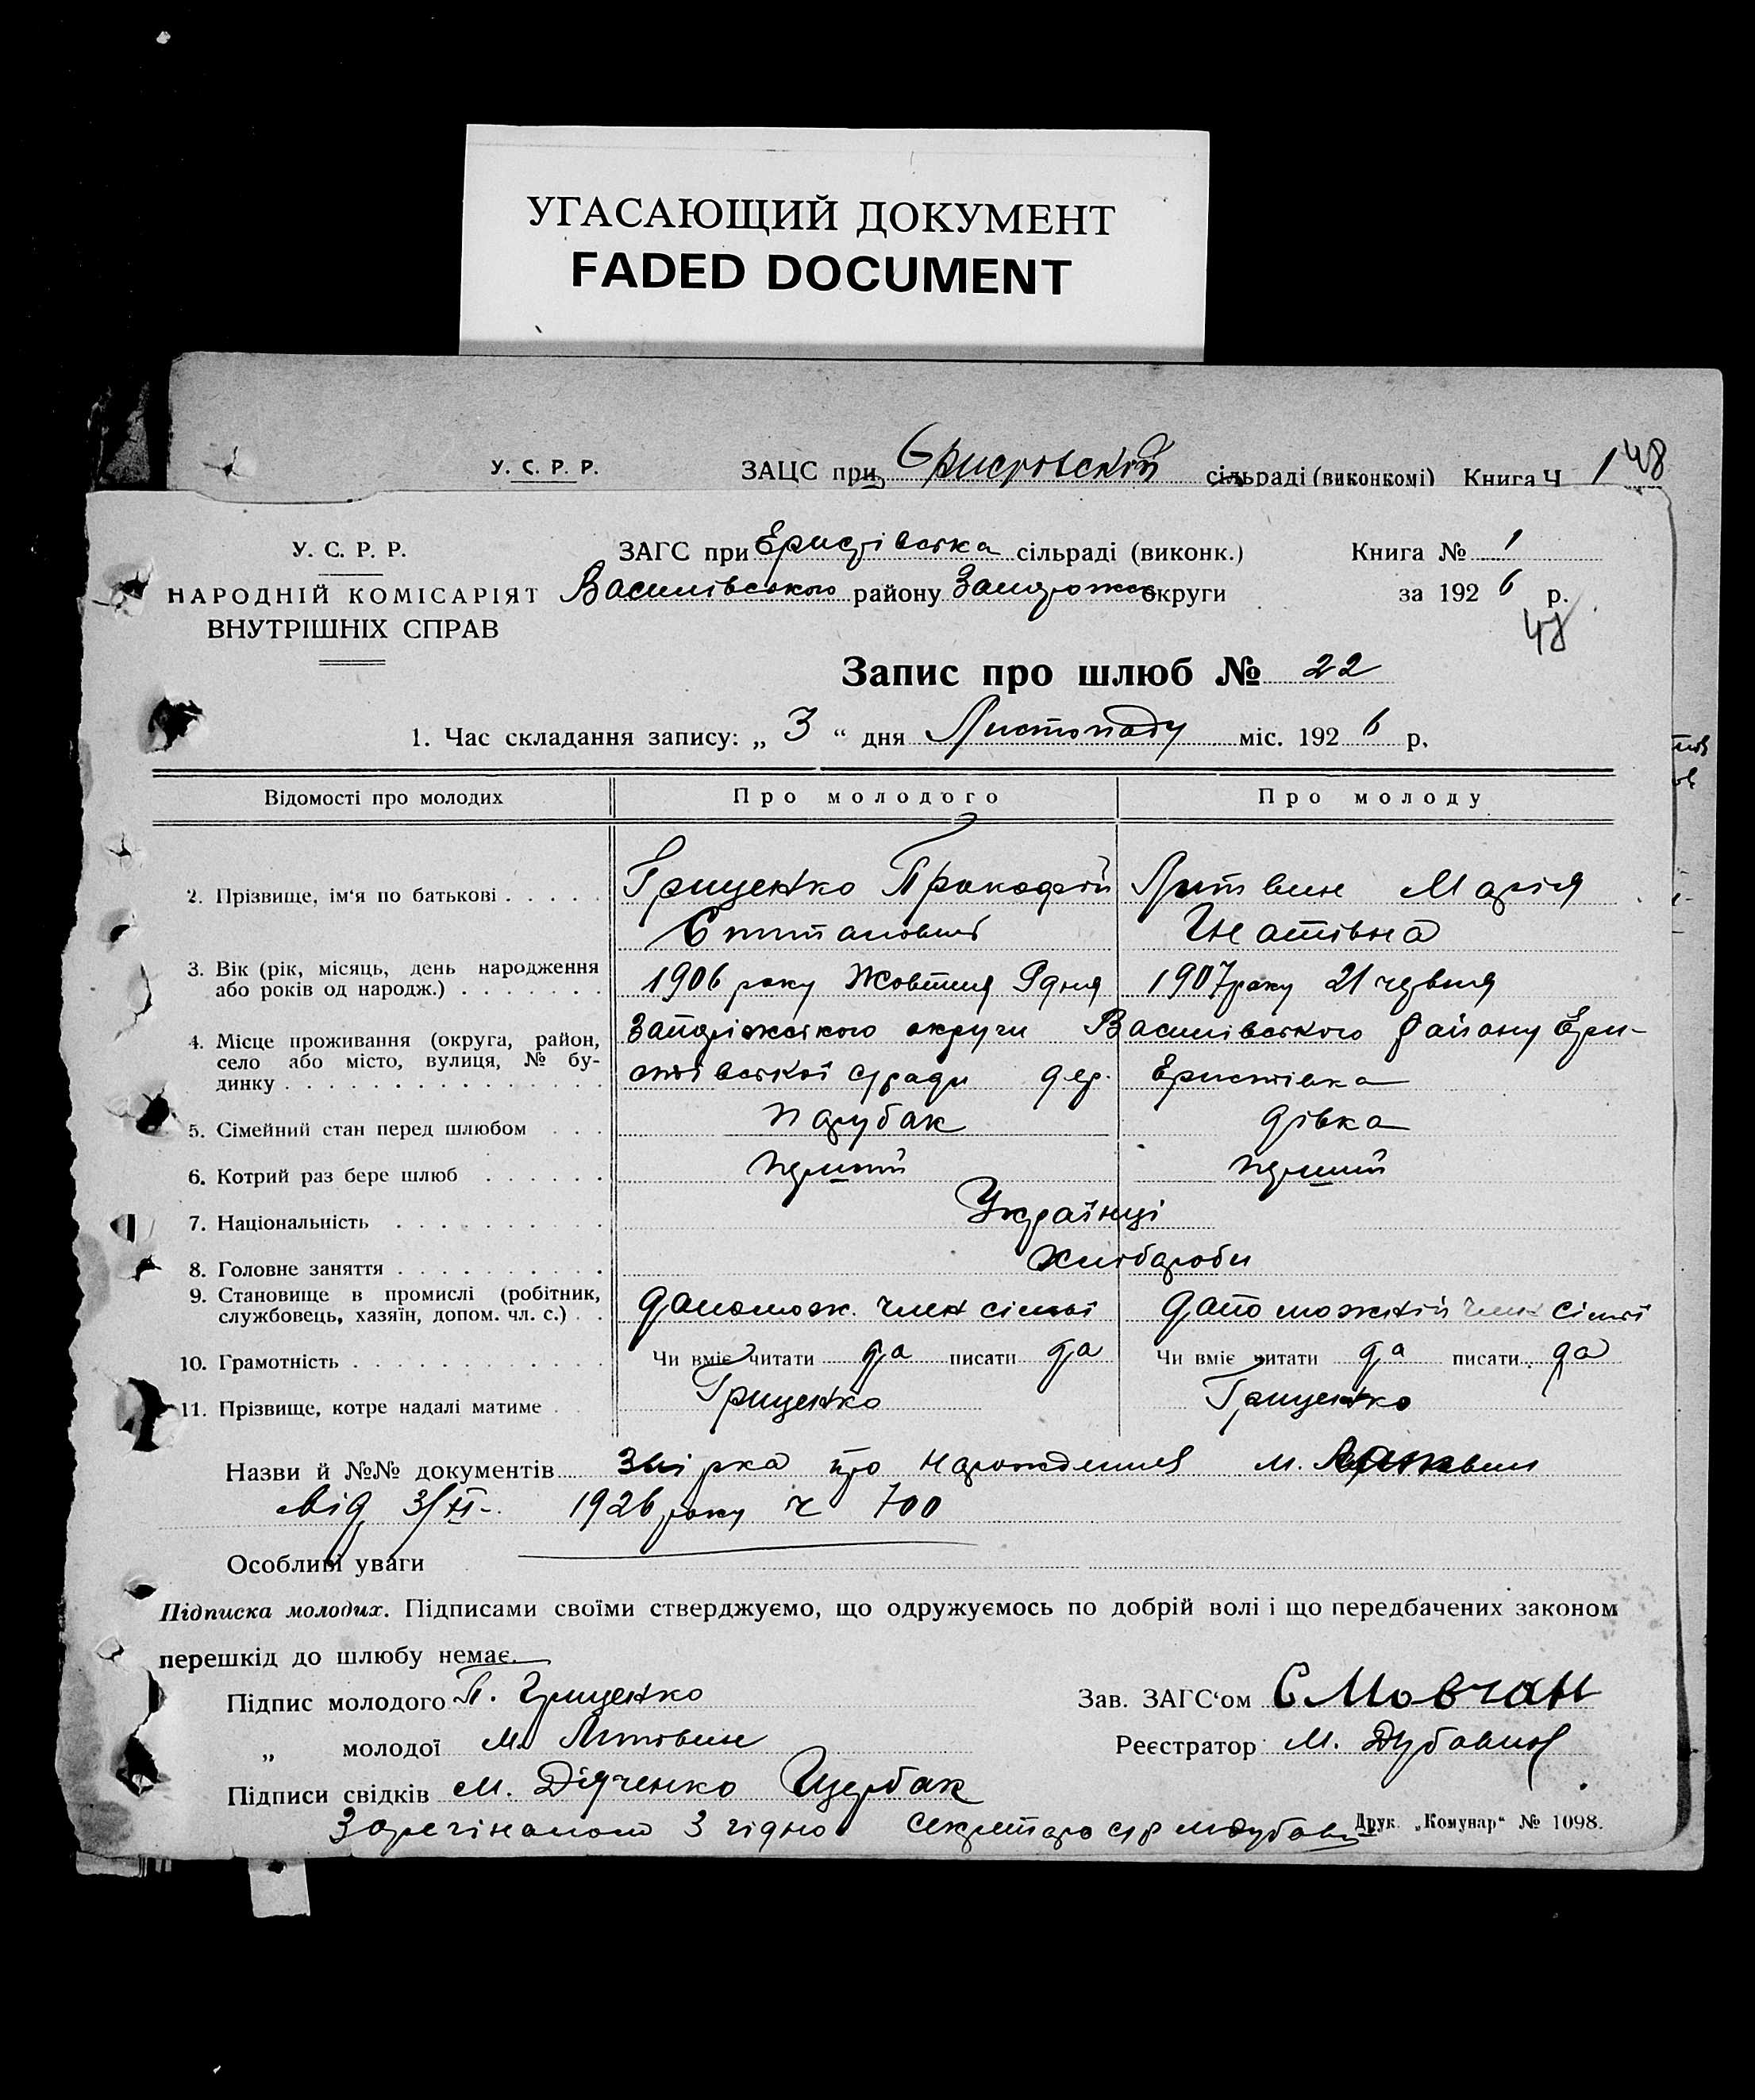 УГАСАЮЩИЙ ДОКУМЕНТ
FADED DOCUMENT
У. С. Р. Р. ЗАЦС при сільраді (виконкомі) Книга Ч 1 48
У. С. Р. Р. ЗАГС при Еристівська сільраді (виконк.) Книга № 1
НАРОДНІЙ КОМІСАРІЯТ Василівського району округи за 192 6 р.
ВНУТРІШНІХ СПРАВ
Запис про шлюб № 22
1. Час складання запису: „ 3 “ дня Листопаду міс. 192 6 р.
Відомості про молодих Про молодого Про молоду
2. Прізвище, ім‘я по батькові Грищенко Прокофій Литвин Марія
Гнатівна
3. Вік (рік, місяць, день народження
або років од народж.) 1906 року Жовтня 9 дня 1907 року 21 червня
4. Місце проживання (округа, район, Запоріжського округи Василівського Району Ери-
село або місто, вулиця, № бу-
динку стівської с/ради дер. Еристівка
5. Сімейний стан перед шлюбом Парубак дівка
6. Котрий раз бере шлюб перший перший
7. Національність Українці
8. Головне заняття Хліботроби
9. Становище в промислі (робітник,
службовець, хазяїн, допом. чл. с.) допомож. член сімьї член сімьї
10. Грамотність Чи вміє читати да писати да Чи вміє читати да писати да
11. Прізвище, котре надалі матиме Грищенко Грищенко
Назви й №№ документів про м.
від 3/XI- 1926 року ч 700
Особливі уваги
Підписка молодих. Підписами своїми стверджуємо, що одружуємось по добрій волі і що передбачених законом
перешкід до шлюбу немає.
Підпис молодого П. Грищенко Зав. ЗАГС‘ом С Мовчан
„ молодої М. Литвин Реєстратор М.
Підписи свідків М. Дяченко Щербак
З гідно Друк. „Комунар“ № 1098.